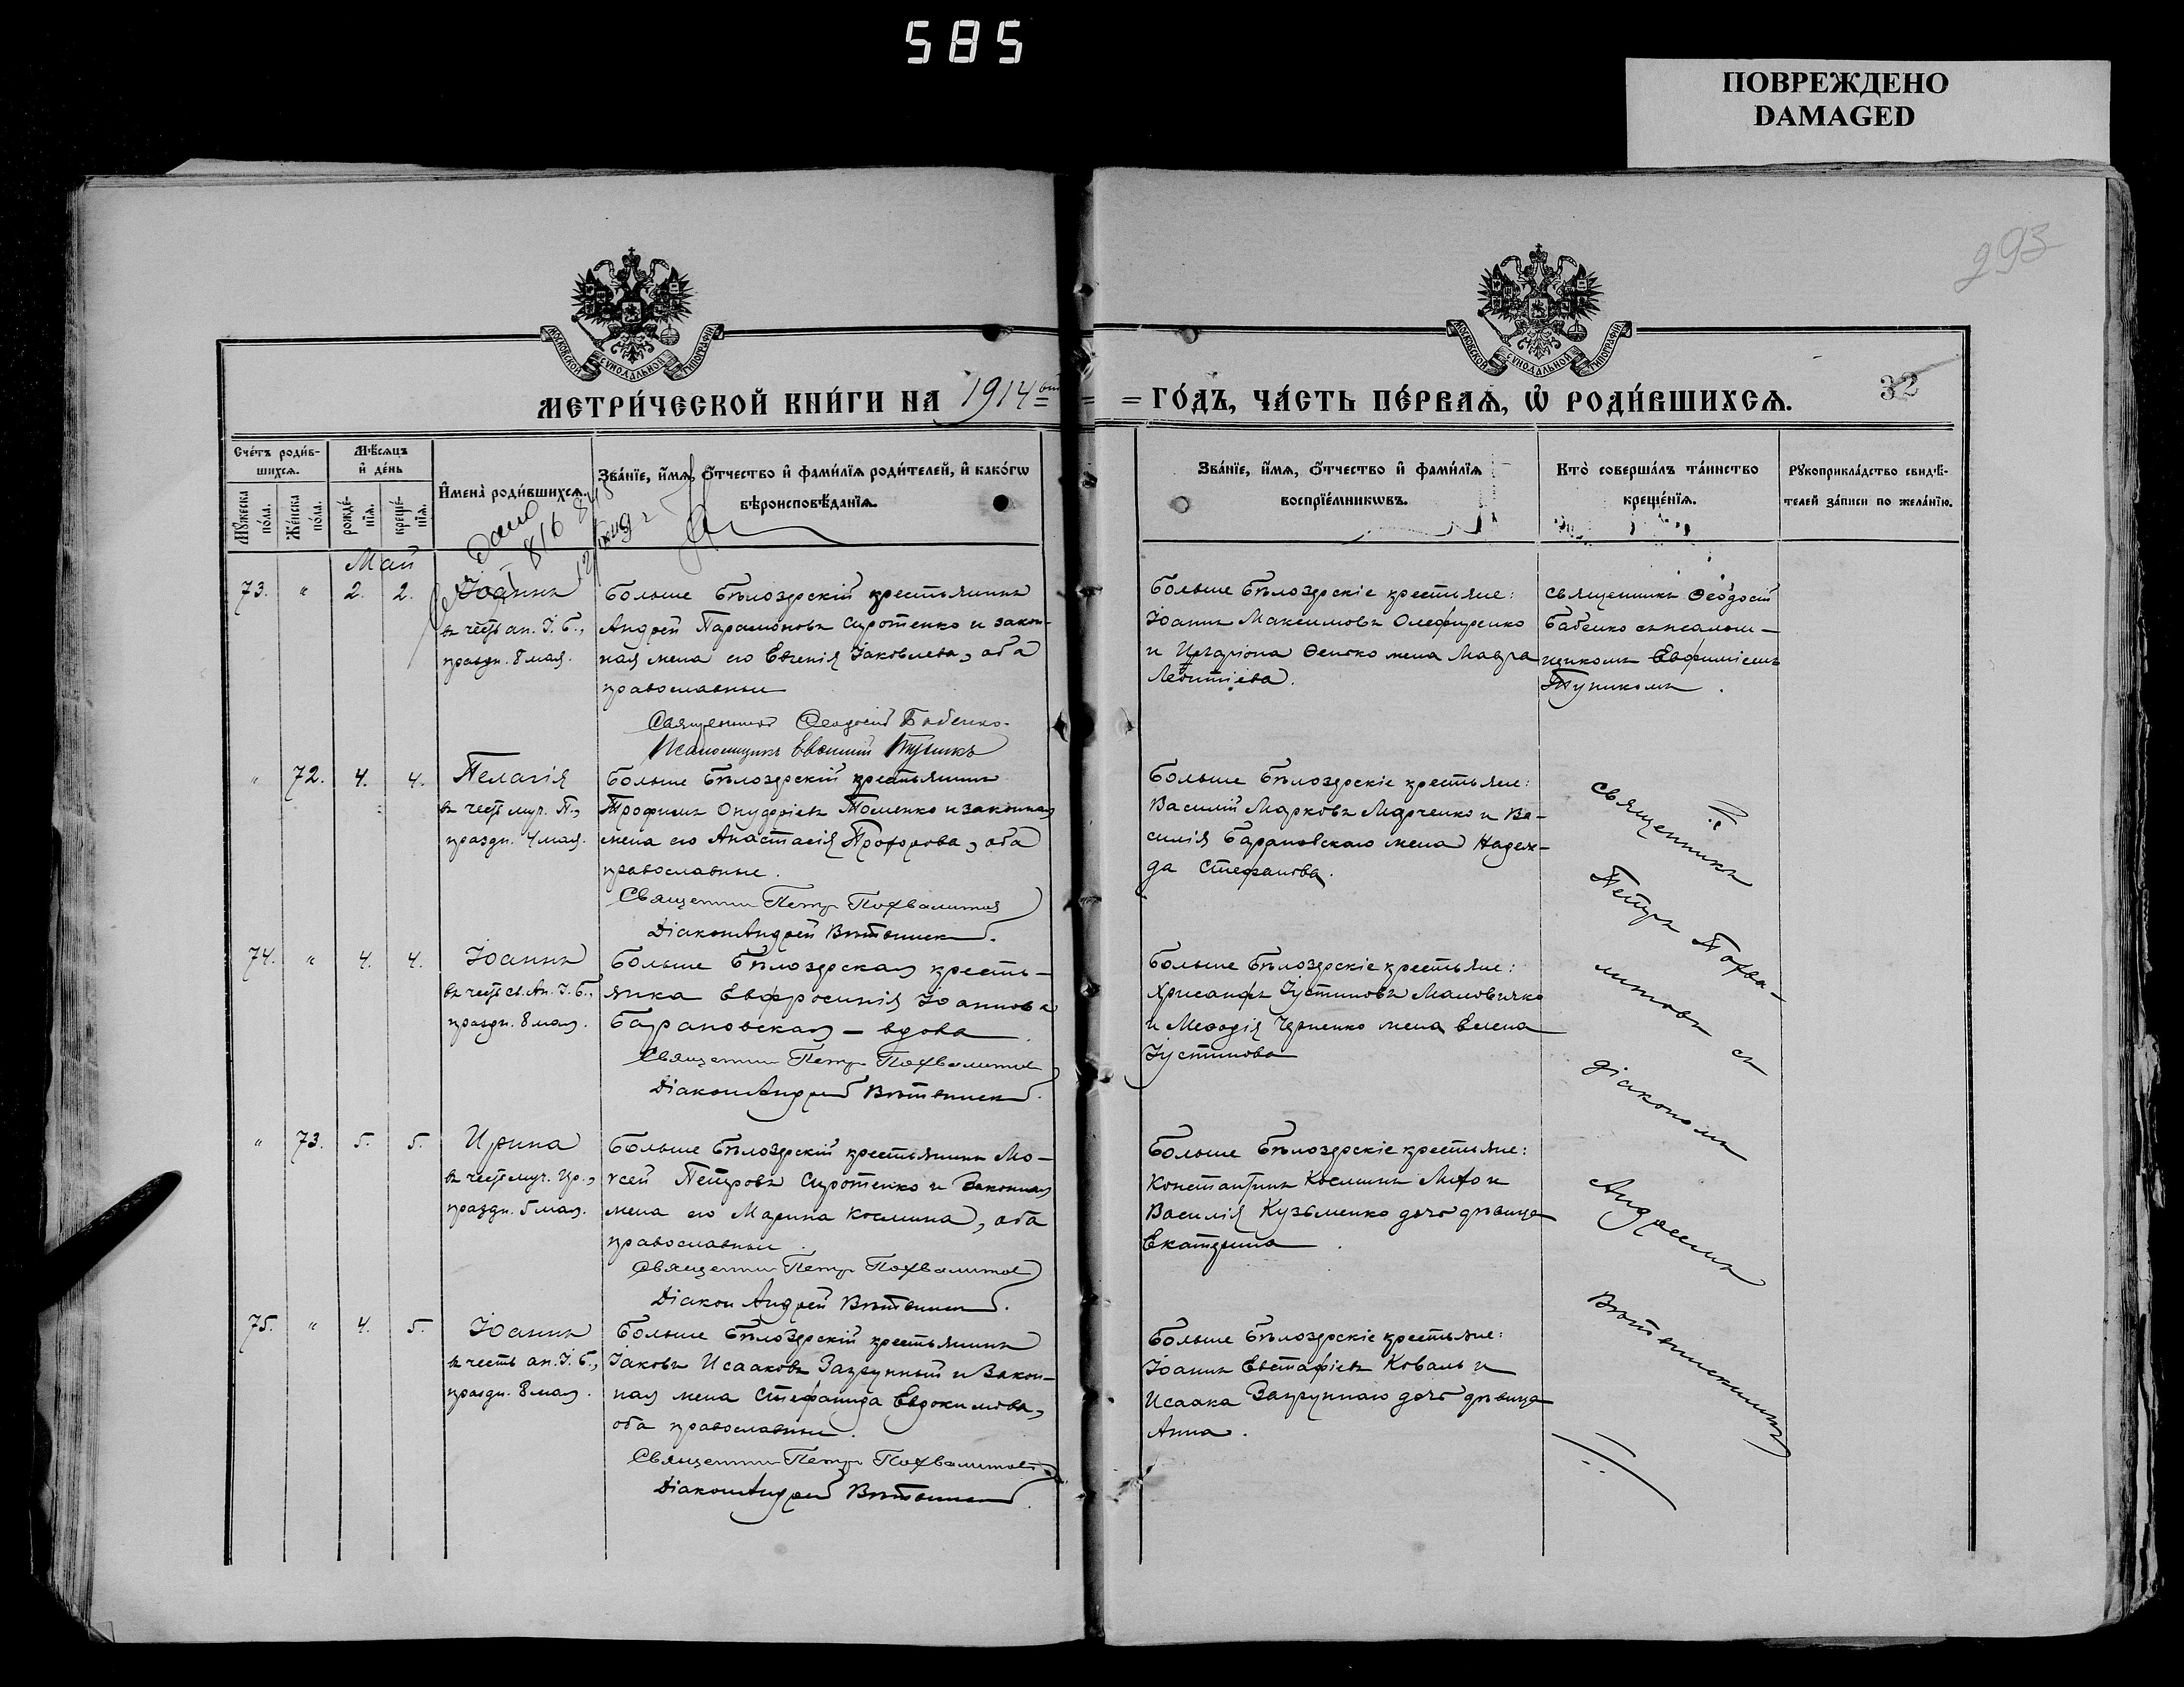 585
ПОВРЕЖДЕНО
DAMAGED
293
МОСКОВСКОЙ СѴНОДАЛЬНОЙ ТИПОГРАФІИ
МОСКОВСКОЙ СѴНОДАЛЬНОЙ ТИПОГРАФІИ
МЕТРИ́ЧЕСКОЙ КНИ́ГИ НА 1914 = ГО́ДЪ, ЧА́СТЬ ПЕ́РВАѦ, Ѽ РОДИ́ВШИХСѦ.
32
Сче́тъ роди́в-
шихсѧ.
Мꙋ́жеска по́ла.
Же́нска по́ла.
Мѣ́сѧцъ
и҆ де́нь
рожде́-
нїѧ.
креще́-
нїѧ.
И҆мена̀ роди́вшихсѧ.
Зва́нїе, и҆́мѧ, ѻ҆́тчество и҆ фами́лїѧ роди́телей, и҆ како́гѡ
вѣроисповѣ́данїѧ.
Зва́нїе, и҆́мѧ, ѻ҆́тчество и҆ фами́лїѧ
воспрїе́мникѡвъ.
Кто̀ соверша́лъ та́инство
креще́нїѧ.
Рꙋкоприкла́дство свидѣ́-
телей за́писи по жела́нїю.
Май
73. " 2. 2.
Іоаннъ
въ честь ап. І. Б.,
праздн. 8 мая.
Больше Бѣлозерскій крестьянинъ
Андрей Парамоновъ Сиротенко и закон-
ная жена его Евгенія Іаковлева, оба
православные
Священникъ Феодосій Бабенко.
Псаломщикъ Евфимій Тупикъ
Больше Бѣлозерскіе крестьяне:
Іоаннъ Максимовъ Олефиренко
и Иларіона жена Мавра
Леонтіева.
Священникъ Ѳеодосій
Бабенко съ псалом-
щикомъ Евфиміемъ
Тупикомъ.
" 72. 4. 4.
Пелагія
въ честь муч. П.,
праздн. 4 мая.
Больше Бѣлозерскій крестьянинъ
Трофимъ Онуфріевъ Томенко и законная
жена его Анастасія Прохорова, оба
православные.
Священникъ Петръ Похвалитовъ
Діаконъ Андрей Вѣтвинскій.
Больше Бѣлозерскіе крестьяне:
Василій Марковъ Марченко и Ва-
силія Барановскаго жена Надеж-
да Стефанова.
Священникъ
Петръ Похва-
литовъ съ
діакономъ
Андреемъ
Вѣтвинскимъ
74. " 4. 4.
Іоаннъ
въ честь св. Ап. І. Б.,
праздн. 8 мая.
Больше Бѣлозерская кресть-
янка Евфросинія Іоаннова
Барановская - вдова.
Священникъ Петръ Похвалитовъ
Діаконъ Андрей Вѣтвинскій.
Больше Бѣлозерскіе крестьяне:
Хрисанфъ Іустиновъ Маловичко
и Меѳодія Черненко жена Елена
Іустинова
" 73. 5. 5.
Ирина
въ честь муч. Ир.,
праздн. 5 мая.
Больше Бѣлозерскій крестьянинъ Мо-
ѵсей Петровъ Сиротенко и законная
жена его Марина Космина, оба
православные.
Священникъ Петръ Похвалитовъ
Діаконъ Андрей Вѣтвинскій.
Больше Бѣлозерскіе крестьяне:
Константинъ Косминъ и
Василія Кузьменко дочь дѣвица
Екатерина.
75. " 4. 5.
Іоаннъ
въ честь ап. І. Б.,
праздн. 8 мая.
Больше Бѣлозерскій крестьянинъ
Іаковъ Исааковъ Запрунный и Закон-
ная жена Стефанида Евдокимова,
оба православные.
Священникъ Петръ Похвалитовъ
Діаконъ Андрей Вѣтвинскій.
Больше Бѣлозерскіе крестьяне:
Іоаннъ Евстафіевъ Коваль и
Исаака Запруннаго дочь дѣвица
Анна.